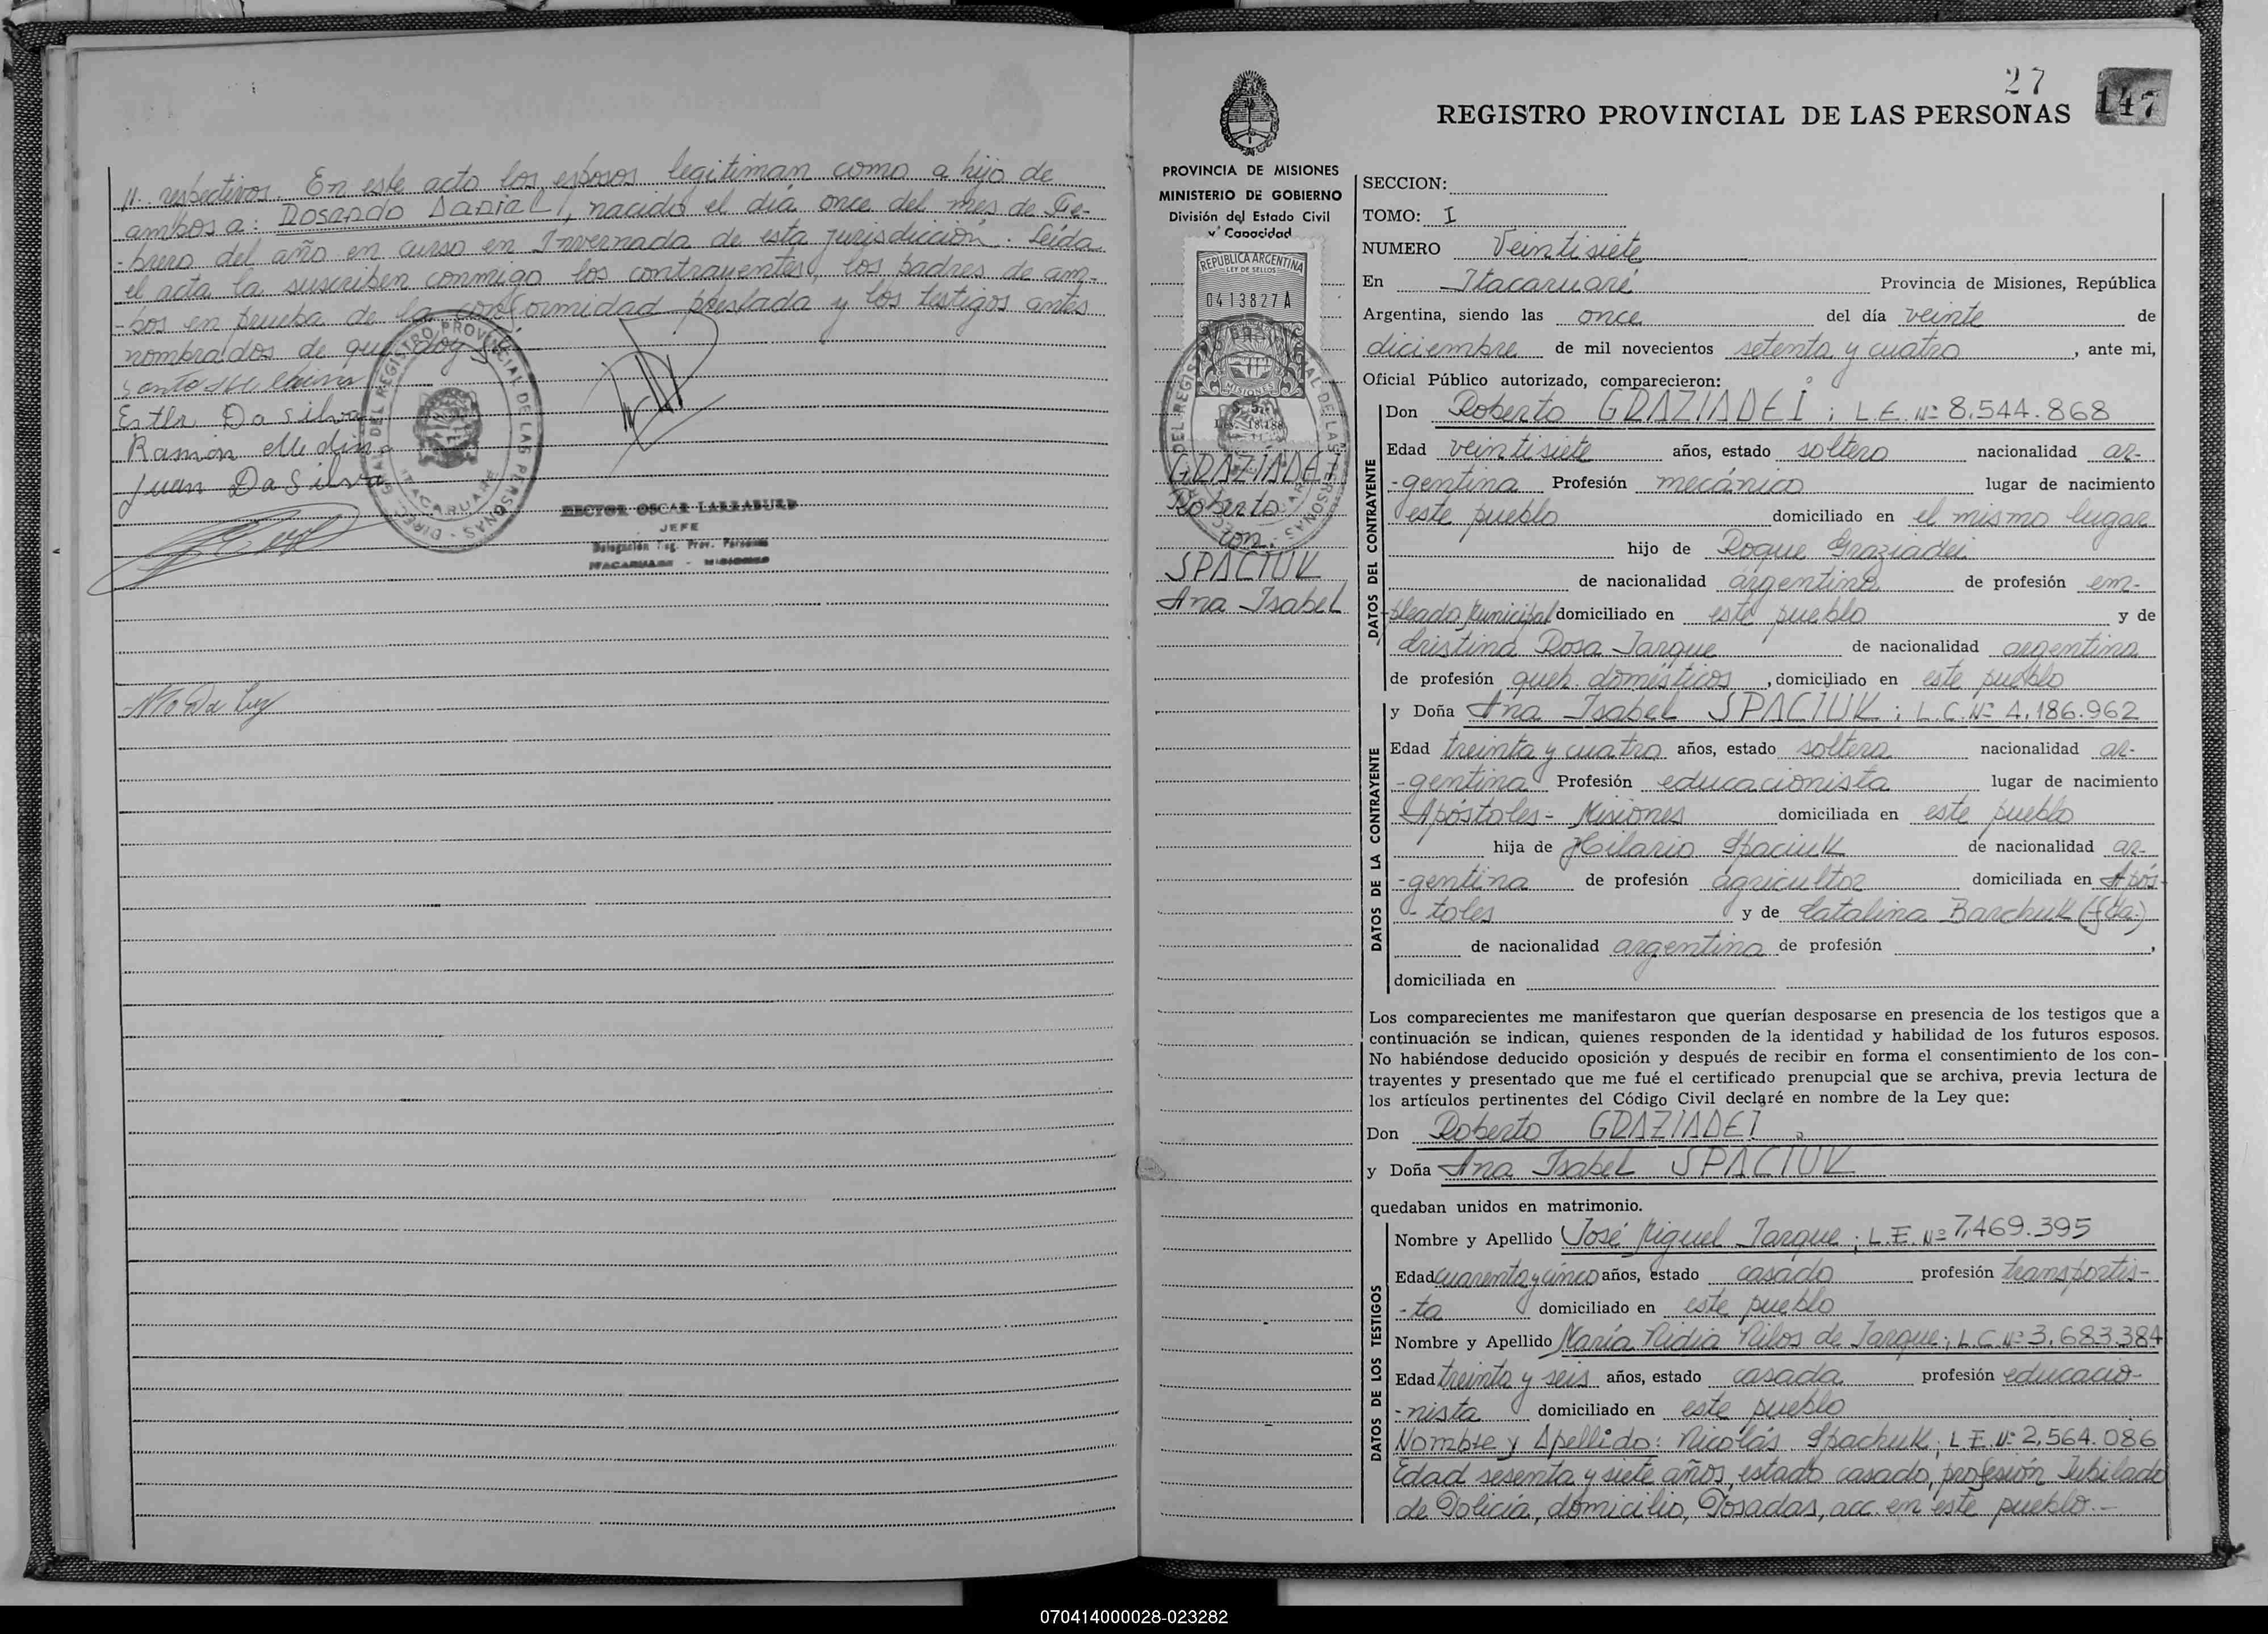 //. respectivos. En este acto los esposos legitiman como a hijo de
ambos a: ROSANDO DANIEL, nacido el día once del mes de Fe-
-brero del año en curso en Invernada de esta jurisdicción. Leída
el acta la suscriben conmigo los contrayentes, los padres de am-
-bos en prueba de la conformidad prestada y los testigos antes
nombrados de que doy fé.
Ester Da Silva
Ramón Medina
Juan Da Silva
HECTOR OSCAR LARRABURU
JEFE
Delegación Reg. Prov. Personas
ITACARUARE - MISIONES
DIREC. GRAL. DEL REGISTRO PROVINCIAL DE LAS PERSONAS
ITACARUARE
27
147
REGISTRO PROVINCIAL DE LAS PERSONAS
PROVINCIA DE MISIONES
MINISTERIO DE GOBIERNO
División del Estado Civil
y Capacidad
REPUBLICA ARGENTINA
LEY DE SELLOS
0413827A
MISIONES
GRAZIADEI
Roberto
con
SPACIUK
Ana Isabel
SECCION:
TOMO: I
NUMERO Veintisiete
En Itacaruaré Provincia de Misiones, República
Argentina, siendo las once del día veinte de
diciembre de mil novecientos setenta y cuatro, ante mi,
Oficial Público autorizado, comparecieron:
DATOS DEL CONTRAYENTE
Don Roberto GRAZIADEI; L.E. Nº 8.544.868
Edad veintisiete años, estado soltero nacionalidad ar-
-gentina Profesión mecánico lugar de nacimiento
este pueblo domiciliado en el mismo lugar
hijo de Roque Graziadei
de nacionalidad argentina de profesión em-
-pleado Municipal domiciliado en este pueblo y de
Cristina Rosa Tarque de nacionalidad argentina
de profesión queh. domésticos, domiciliado en este pueblo
DATOS DE LA CONTRAYENTE
y Doña Ana Isabel SPACIUK; L.C. Nº 4.186.962
Edad treinta y cuatro años, estado soltera nacionalidad ar-
-gentina Profesión educacionista lugar de nacimiento
Apóstoles - Misiones domiciliada en este pueblo
hija de Hilario Spaciuk de nacionalidad ar-
-gentina de profesión agricultor domiciliada en Após-
-toles y de Catalina Barchuk (fda.)
de nacionalidad argentina de profesión ,
domiciliada en
Los comparecientes me manifestaron que querían desposarse en presencia de los testigos que a
continuación se indican, quienes responden de la identidad y habilidad de los futuros esposos.
No habiéndose deducido oposición y después de recibir en forma el consentimiento de los con-
trayentes y presentado que me fué el certificado prenupcial que se archiva, previa lectura de
los artículos pertinentes del Código Civil declaré en nombre de la Ley que:
Don Roberto GRAZIADEI
y Doña Ana Isabel SPACIUK
quedaban unidos en matrimonio.
DATOS DE LOS TESTIGOS
Nombre y Apellido José Miguel Tarque; L.E. Nº 7.469.395
Edad cuarenta y cinco años, estado casado profesión transportis-
-ta domiciliado en este pueblo
Nombre y Apellido María Nidia Nilos de Tarque; L.C. Nº 3.683.384
Edad treinta y seis años, estado casada profesión educacio-
-nista domiciliado en este pueblo
Nombre y Apellido: Nicolás Spachuk, L.E. Nº 2.564.086
Edad sesenta y siete años, estado casado, profesión Jubilado
de Policía, domicilio, Posadas, acc. en este pueblo.-
070414000028-023282